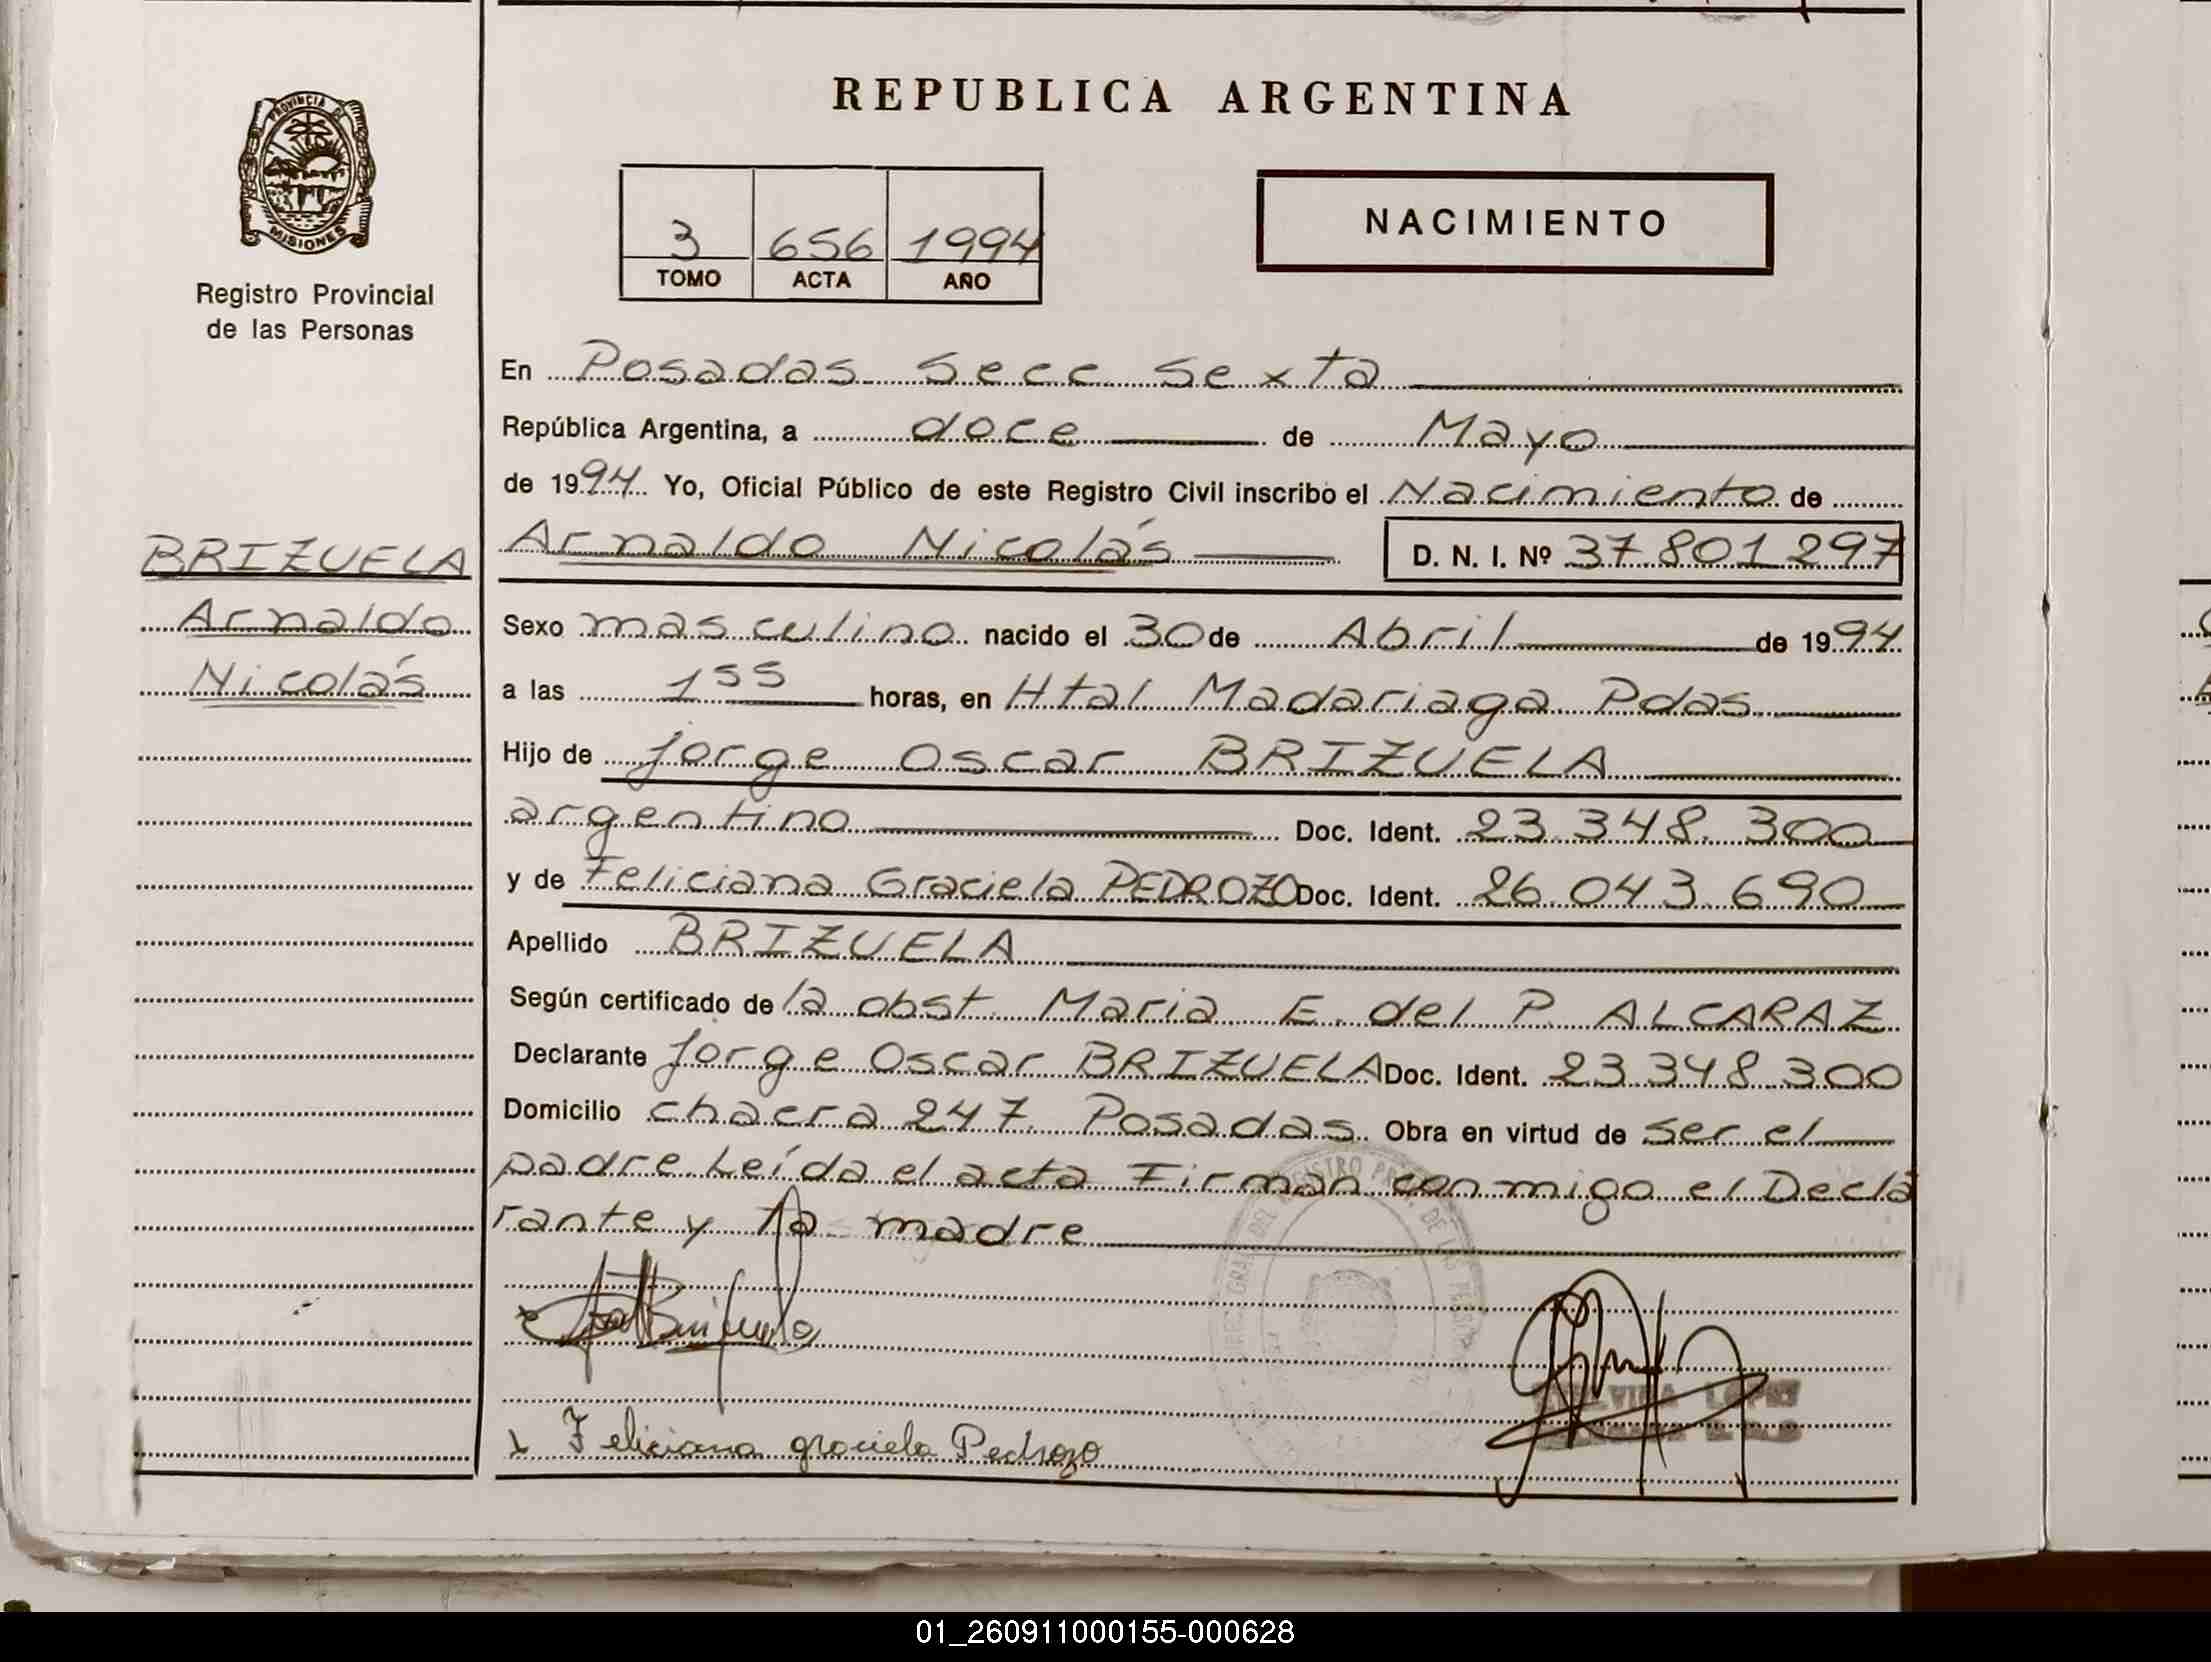 REPUBLICA ARGENTINA
PROVINCIA DE
MISIONES
Registro Provincial
de las Personas
3 656 1994
TOMO ACTA AÑO
NACIMIENTO
En Posadas Secc Sexta
República Argentina, a doce de Mayo
de 1994 Yo, Oficial Público de este Registro Civil inscribo el Nacimiento de
BRIZUELA
Arnaldo
Nicolás
Arnaldo Nicolás D. N. I. Nº 37.801.297
Sexo masculino nacido el 30 de Abril de 1994
a las 1 55 horas, en Htal Madariaga Pdas
Hijo de Jorge Oscar BRIZUELA
argentino Doc. Ident. 23.348.300
y de Feliciana Graciela PEDROZO Doc. Ident. 26.043.690
Apellido BRIZUELA
Según certificado de la obst. Maria E. del P. ALCARAZ
Declarante Jorge Oscar BRIZUELA Doc. Ident. 23.348.300
Domicilio chacra 247. Posadas. Obra en virtud de ser el
padre. Leída el acta Firman conmigo el Decla
rante y la madre
Feliciana graciela Pedrozo
01_260911000155-000628